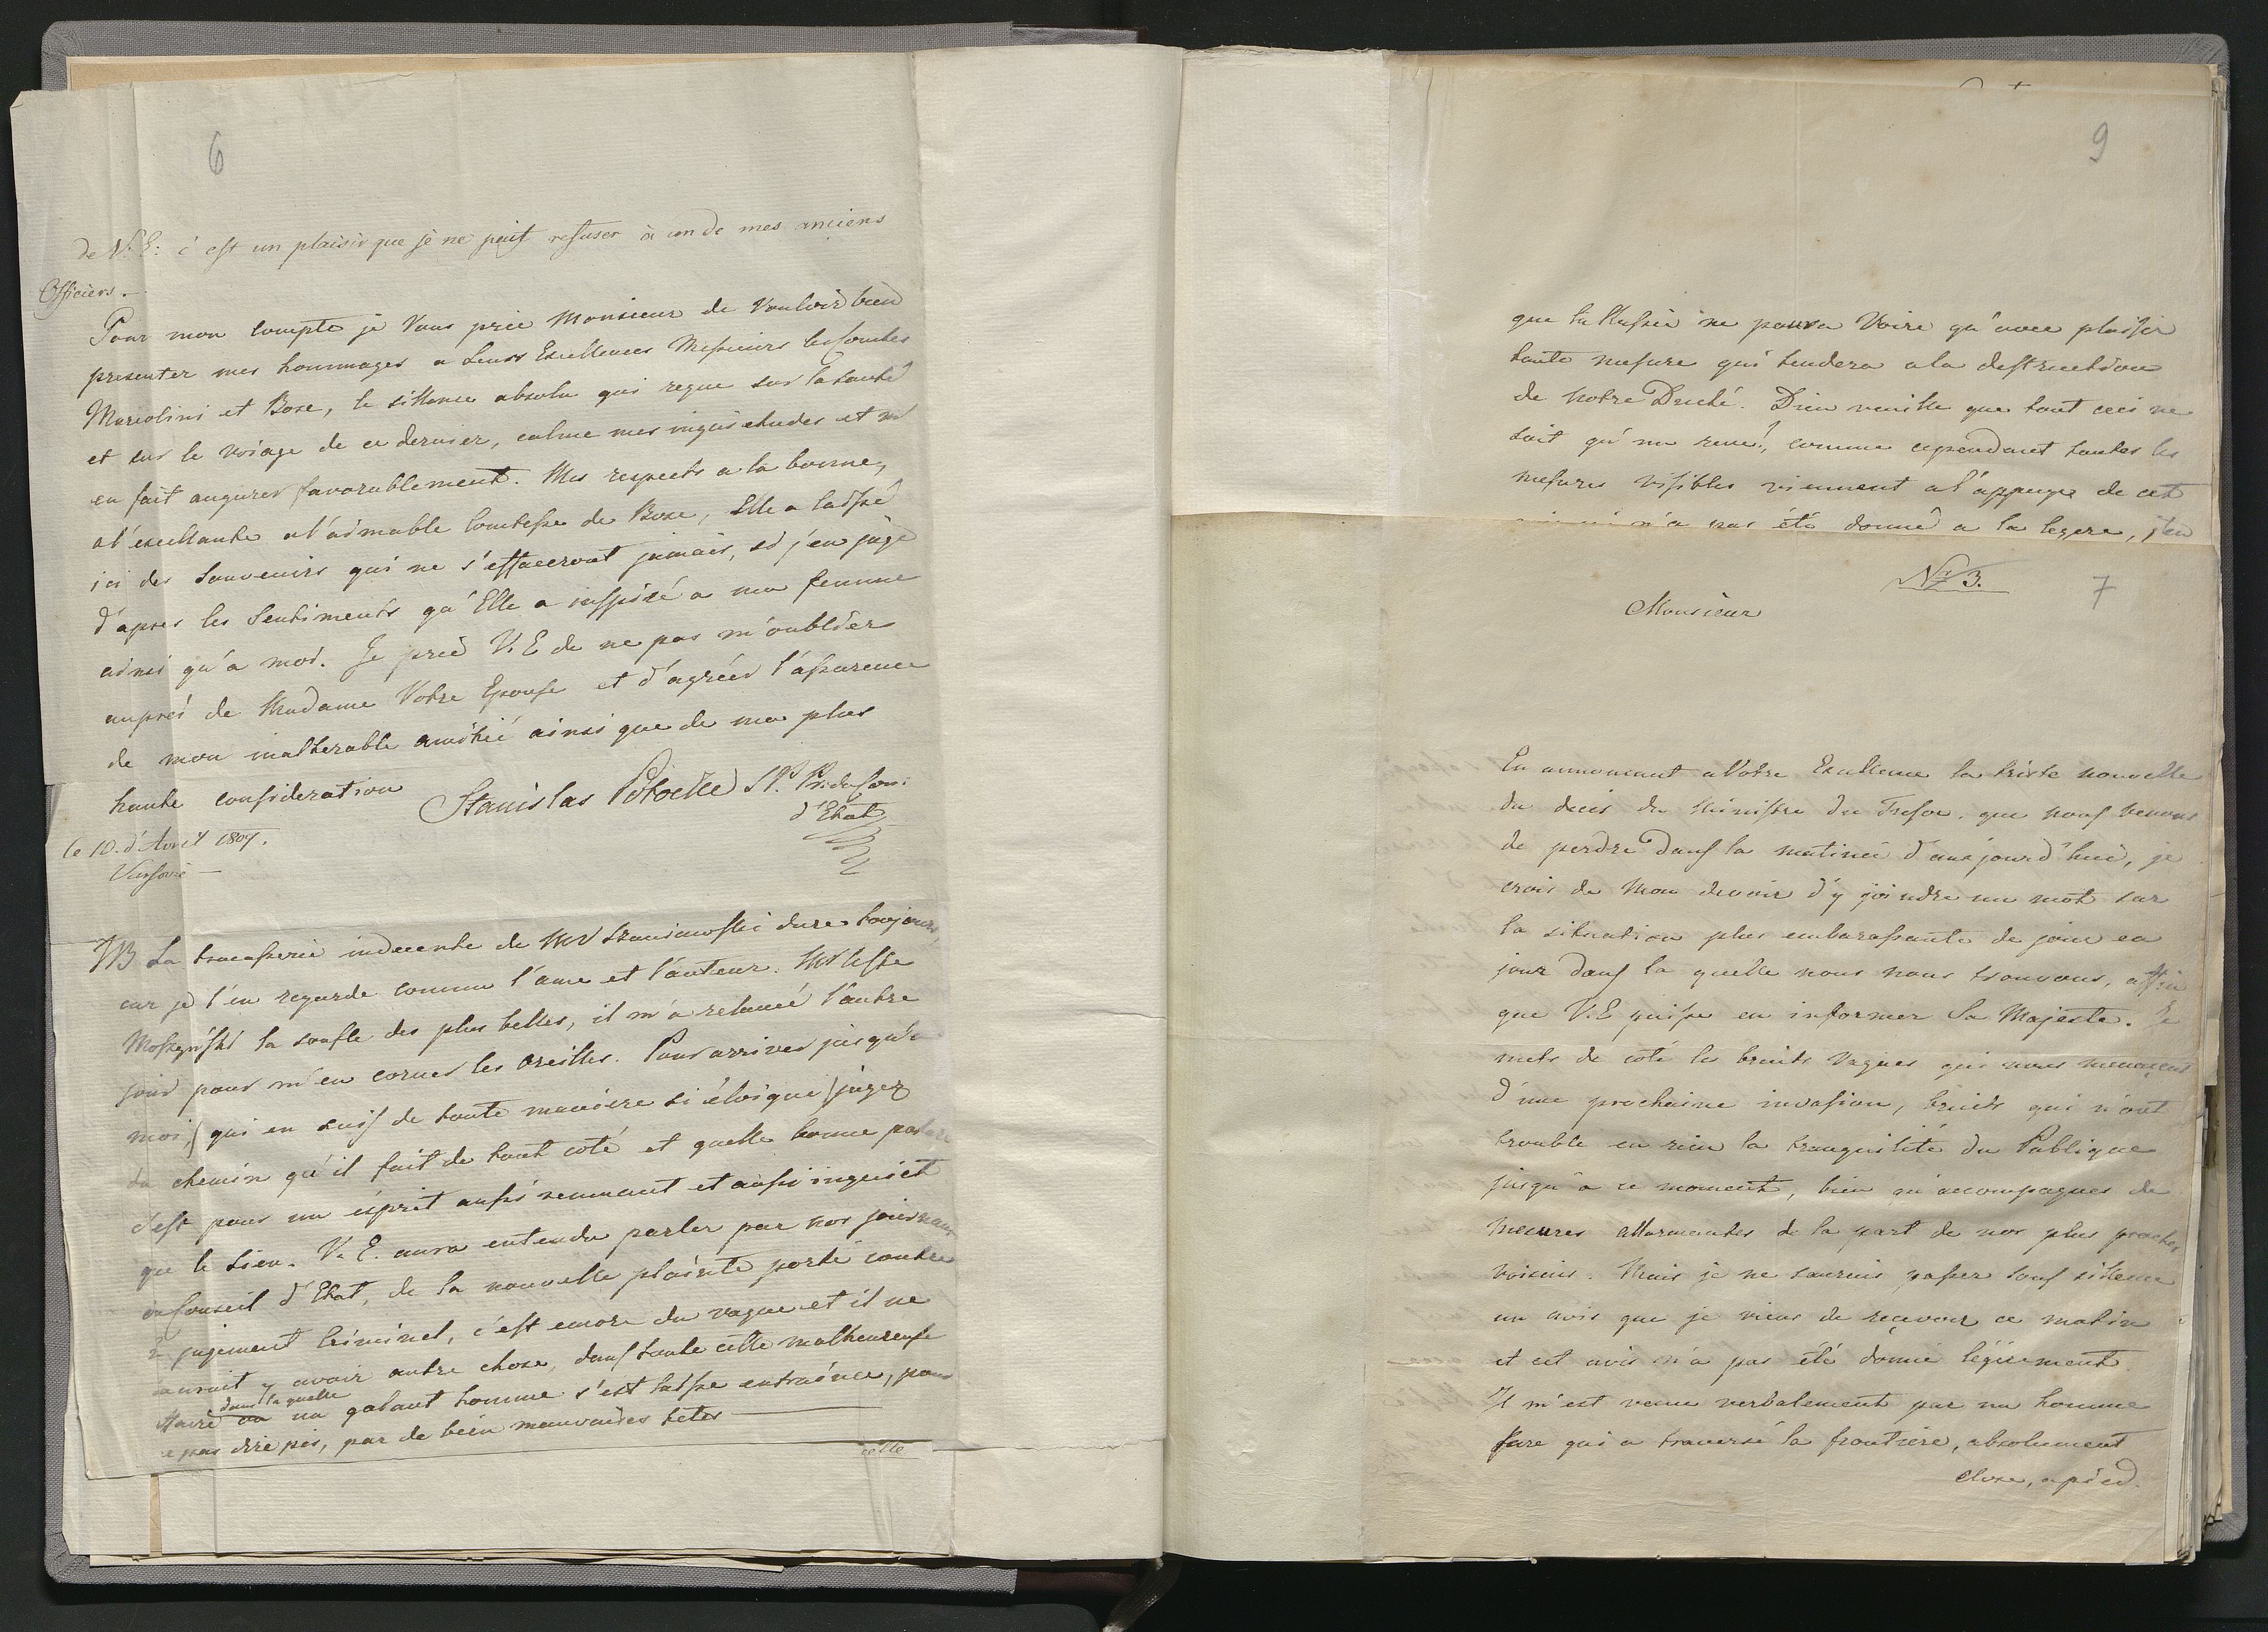 6
de V: E: c'est un plaisir que je ne peut refuser à un de mes anciens
Officiers.—
Pour mon compte je Vous prie Monsieur de Vouloir bien
presenter mes hommages a Leurs Excellences Messieurs les Comtes
Marcolini et Bose, le sillence absolu qui regne sur la santé
et sur le voiage de ce dernier, calme mes inquietudes et m'
en fait augurer favorablement. Mes respects a la bonne,
a l'excellante a l'aimable Comtesse de Bose, Elle a laissé
ici des Souvenirs qui ne s'effaceront jamais, si j'en juge
d'apres les Sentiments qu'Elle a inspiré a ma femme
ainsi qu'a moi. Je prie V. E de ne pas m'oublier
auprés de Madame Votre Epouse et d'agréer l'assurence
de mon inalterable amitié ainsi que de ma plus
haute consideration
Stanislas Potocki
d'Etat
le 10. d'Avril 1809.
Varsovie —
NB La tracasserie indecente de Mr dure toujours,
car je l'en regarde comme l'ame et l'auteur. Mr
la soufle des plus belles, il m'a relancé l'autre
jour pour m'en corner les oreilles. Pour arriver jusqu'a
moi, qui en suis de toute maniere si éloigné jugez
du chemin qu'il fait de tout coté et quelle bonne
c'est pour un ésprit aussi remuant et aussi inquiet
que le sien. V. E. aura entendu parler par nos journaux
du Conseil d'Etat, de la nouvelle plainte porté contre
jugement Criminel, c'est encore du vague et il ne
sauroit y avoir autre chose, dans toute cette malheureuse
dans la quelle
affaire ou un galant homme s'est laisse entrainer, pour
ne pas dire pis, par de bien mauvaises tetes
cette
9
que la Russie ne pourra Voire qu'avec plaisir
toute mesure qui tendera a la destruction
de notre Duché. Dieu veuille que tout ceci ne
soit qu'un reve!, comme cependant toutes les
mesures visibles viennent a l'appuye de cet
n'a pas été donné a la legere, j'en
No 3.
7
Monsieur
En annonçant a Votre Excellence la triste nouvelle
du deces du Ministre du Tresor, que nous venons
de perdre dans la matinée d'aujourd'hui, je
crois de mon devoir d'y joindre un mot sur
la situation plus embarassante de jour en
jour dans la quelle nous nous trouvons, affin
que V. E puisse en informer Sa Majeste. Je
mets de coté les bruits vagues qui nous menaçent
d'une prochaine invasion, bruits qui n'ont
trouble en rien la tranquilité du Publique
jusqu'a ce moment, bien qu'accompagnes de
mesures allarmantes de la part de nos plus proches
voisins. Mais je ne saurais passer sous sillence
un avis que je viens de reçevoir ce matin
et cet avis n'a pas été donné légérement.
Il m'est venu verbalement par un homme
sure qui a traversé la frontiere, absolument
close, a pied.